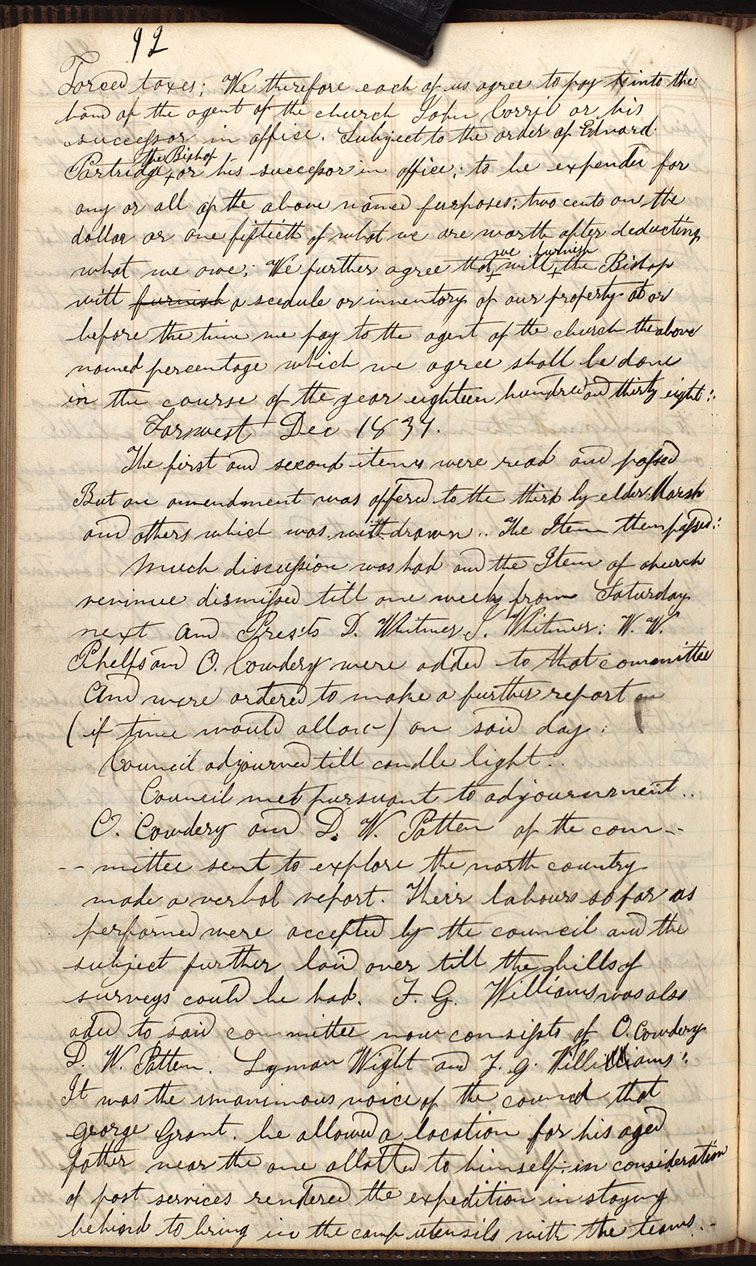 92
Forced taxes; We therefore each of us agree to pay into the
hand of the agent of the church John Corril or his
successor in office. Subject to the order of Edward
Partridge the Bishop or his successor in office; to be expended for
any or all of the above named purposes; two cents on the
dollar or one fiftieth of what we are worth after deducting
what we owe; We further agree that we will furnish the Bishop
with furnish a scedule or inventory of our property at or
before the time we pay to the agent of the church the above
named percentage which we agree shall be done
in the course of the year eighteen hundred and thirty eight:.
Farwest Dec 1837.
The first and second items were read and passed
But an amendment was offered to the third by elder Marsh
and others which was withdrawn.. The Item then passed:
Much discussion was had and the Item of church
revinue dismissed till one week from Saturday
next and Prests D. Whitmer J. Whitmer: W. W.
Phelps and O. Cowdery were added to that committee
And were ordered to make a further report
(if time would allow) on said day:
Council adjourned till candle light..
Council met pursuant to adjournment..
O. Cowdery and D. W. Patten of the com--
--mittee sent to explore the north country
made a verbal report. Their labours so far as
performed were accepted by the council and the
subject further laid over till the bills of
surveys could be had. F. G. Williams was also
aded to said committee now consists of O. Cowdery
D. W. Patten. Lyman Wight and F. G. Williams:
It was the unanimous voice of the council that
George Grant. be allowed a location for his aged
father near the one allotted to himself in consideration
of past services rendered the expedition in staying
behind to bring in the camp utensils with the teams..